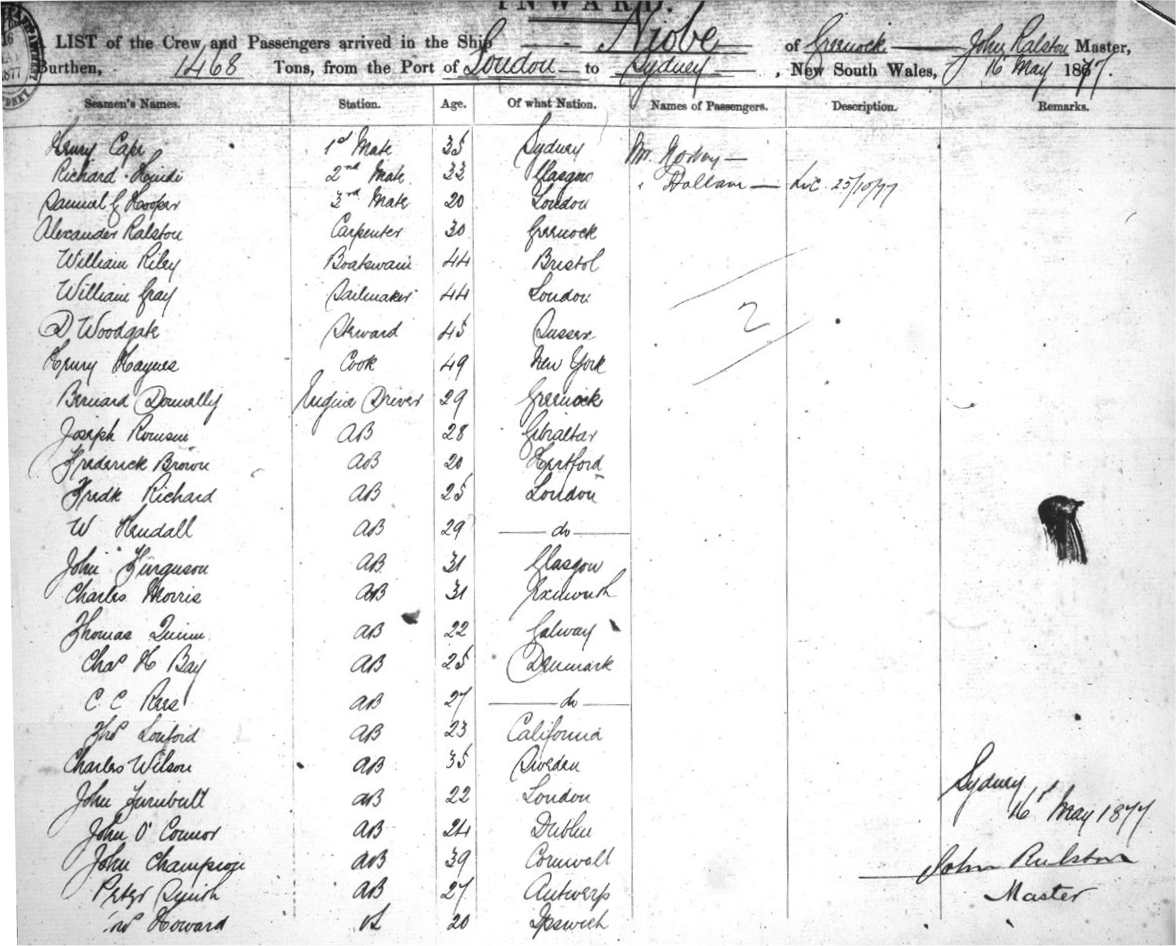 INWARD.
A LIST of the Crew and Passengers arrived in the Ship Niobe of Greenock John Ralston Master,
Burthen, 1468 Tons, from the Port of London to Sydney, New South Wales, 16 May 1877.
Seamen's Names. Station. Age. Of what Nation. Names of Passengers. Description. Remarks.
Henry Cape 1st Mate 35 Sydney Mr.
Richard 2nd Mate 33 Glasgow 25/10/77
Samuel G Hooper 3rd Mate 20 London
Alexander Ralston Carpenter 30 Greenock
William Riley Boatswain 44 Bristol
William Gray Sailmaker 44 London
2
D Woodgate Steward 45 Sussex
Henry Haynes Cook 49 New York
Bernard Donnelly Engine Driver 29 Greenock
Joseph AB 28 Gibraltar
Frederick Brown AB 20 Hertford
Fredk Richard AB 25 London
W Kendall AB 29 do
John Ferguson AB 31 Glasgow
Charles Morris AB 31 Exmouth
Thomas Quinn AB 22 Galway
Chas H Bay AB 25 Denmark
C. C. AB 27 do
Thos AB 23 California
Charles Wilson AB 35 Sweden
John Turnbull AB 22 London
John O'Connor AB 24 Dublin
John AB 39 Cornwall
Peter AB 27 Antwerp
Howard 20 Ipswich
Sydney
16th May 1877
John Ralston
Master